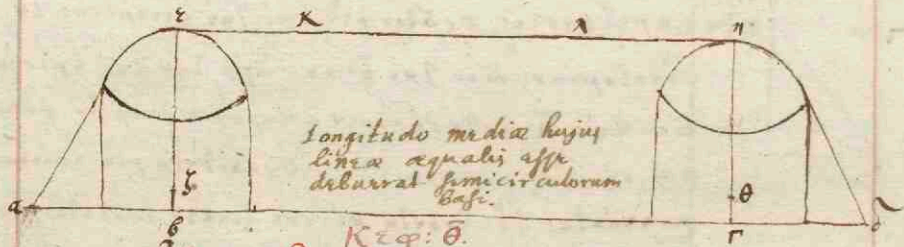 ε κ λ η
Longitudo mediæ hujus
lineæ æqualis esse
debuerat semicirculorum
basi.
ζ θ
α β Γ δ
Κεφ: θ̅.